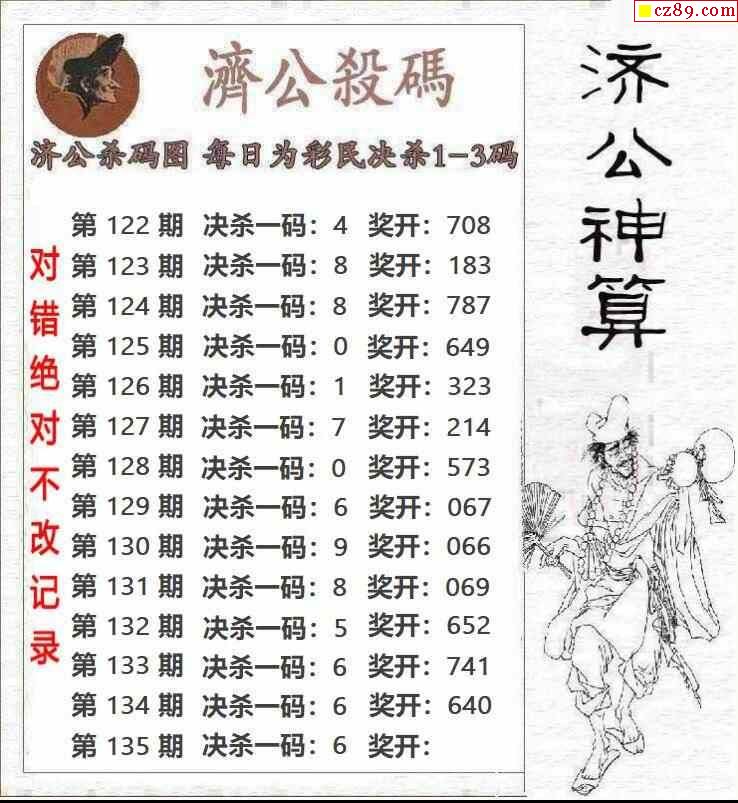 cz89.com
濟公殺碼
济公杀码图 每日为彩民决杀1-3码
第 122 期 决杀一码：4 奖开：708
第 123 期 决杀一码：8 奖开：183
第 124 期 决杀一码：8 奖开：787
第 125 期 决杀一码：0 奖开：649
第 126 期 决杀一码：1 奖开：323
第 127 期 决杀一码：7 奖开：214
第 128 期 决杀一码：0 奖开：573
第 129 期 决杀一码：6 奖开：067
第 130 期 决杀一码：9 奖开：066
第 131 期 决杀一码：8 奖开：069
第 132 期 决杀一码：5 奖开：652
第 133 期 决杀一码：6 奖开：741
第 134 期 决杀一码：6 奖开：640
第 135 期 决杀一码：6 奖开：
对错绝对不改记录
济公神算